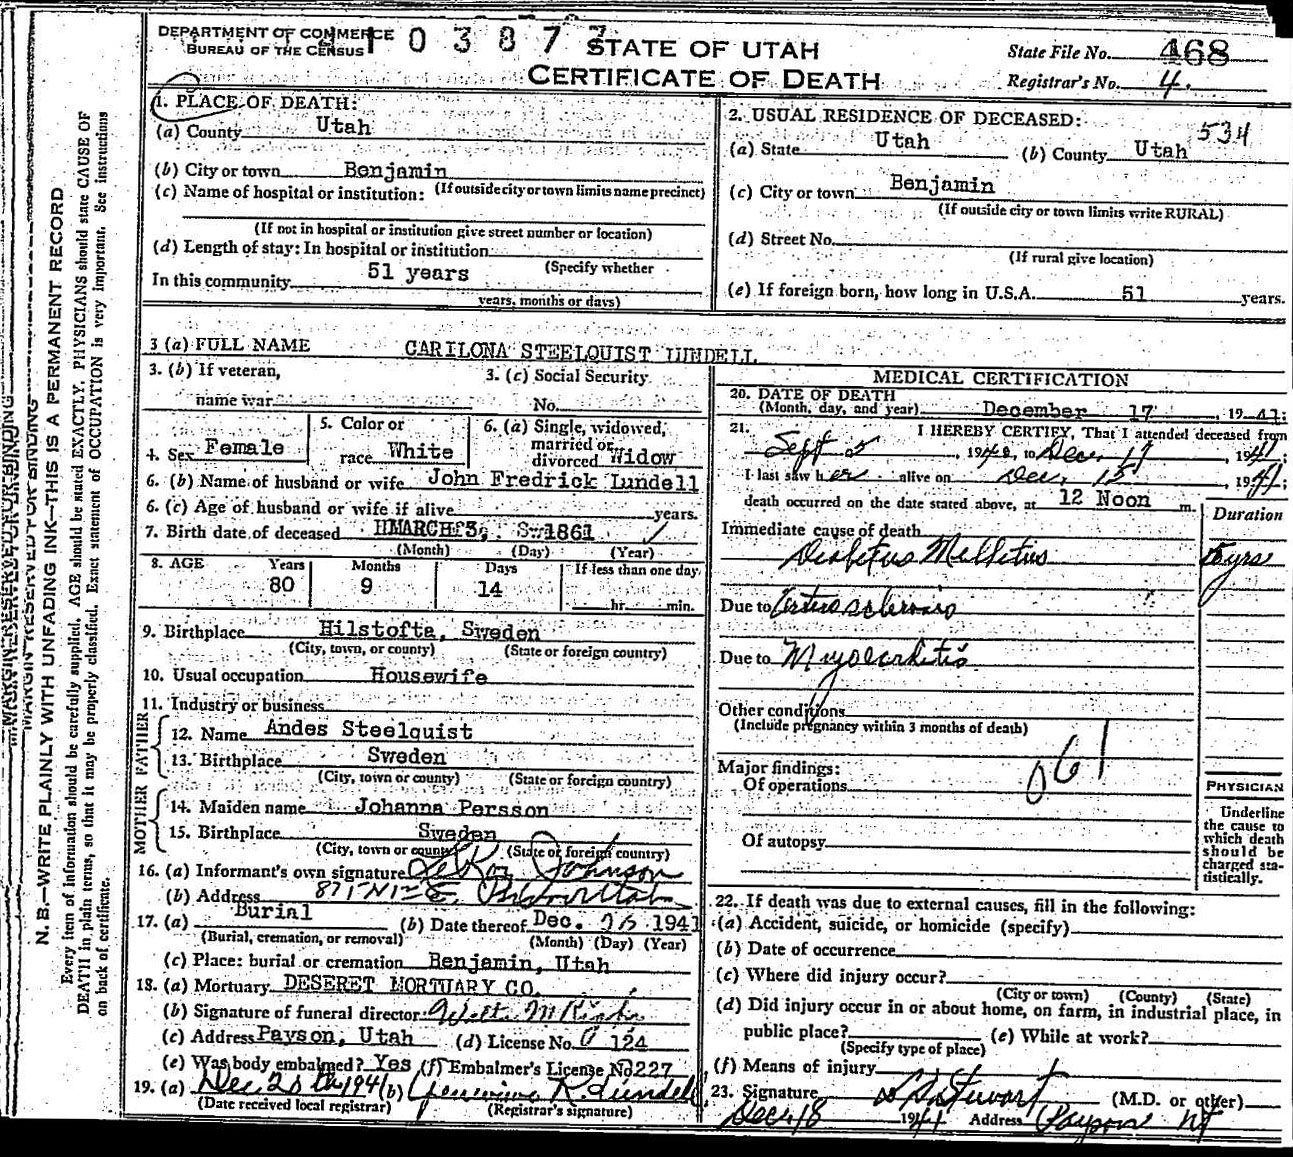 DEPARTMENT OF COMMERCE
BUREAU OF THE CENSUS
STATE OF UTAH
CERTIFICATE OF DEATH
State File No. 468
Registrar's No. 4.
1. PLACE OF DEATH:
(a) County Utah
(b) City or town Benjamin
(c) Name of hospital or institution: (If outside city or town limits name precinct)
(If not in hospital or institution give street number or location)
(d) Length of stay: In hospital or institution
(Specify whether
In this community 51 years
years, months or days)
2. USUAL RESIDENCE OF DECEASED:
534
(a) State Utah (b) County Utah
(c) City or town Benjamin
(If outside city or town limits write RURAL)
(d) Street No.
(If rural give location)
(e) If foreign born, how long in U.S.A. 51 years.
3 (a) FULL NAME CARILONA STEELQUIST LUNDELL
3. (b) If veteran,
name war
3. (c) Social Security
No.
4. Sex Female
5. Color or
race White
6. (a) Single, widowed,
married or
divorced Widow
6. (b) Name of husband or wife John Fredrick Lundell
6. (c) Age of husband or wife if alive years.
7. Birth date of deceased MARCH 3, 1861
(Month) (Day) (Year)
8. AGE Years Months Days If less than one day
80 9 14
hr. min.
9. Birthplace Hilstofta, Sweden
(City, town, or county) (State or foreign country)
10. Usual occupation Housewife
11. Industry or business
FATHER
12. Name Andes Steelquist
13. Birthplace Sweden
(City, town or county) (State or foreign country)
MOTHER
14. Maiden name Johanna Persson
15. Birthplace Sweden
(City, town or county) (State or foreign country)
16. (a) Informant's own signature Johnson
(b) Address
17. (a) Burial (b) Date thereof Dec. 1941
(Burial, cremation, or removal) (Month) (Day) (Year)
(c) Place: burial or cremation Benjamin, Utah
18. (a) Mortuary DESERET MORTUARY CO.
(b) Signature of funeral director
(c) Address Payson, Utah (d) License No. 124
(e) Was body embalmed? Yes (f) Embalmer's License No 227
19. (a) Dec 20th 1941 (b) K. Lundell
(Date received local registrar) (Registrar's signature)
MEDICAL CERTIFICATION
20. DATE OF DEATH
(Month, day, and year) December 17, 1941;
21. I HEREBY CERTIFY, That I attended deceased from
Sept 5, 1940, to Dec. 17, 1941
I last saw her alive on Dec. 15, 1941;
death occurred on the date stated above, at 12 Noon m.
Duration
Immediate cause of death
Diabetus Mellitus
yrs
Due to Arteriosclerosis
Due to Myocarditis
Other conditions
(Include pregnancy within 3 months of death)
061
Major findings:
Of operations
Of autopsy
PHYSICIAN
Underline
the cause to
which death
should be
charged sta-
tistically.
22. If death was due to external causes, fill in the following:
(a) Accident, suicide, or homicide (specify)
(b) Date of occurrence
(c) Where did injury occur?
(City or town) (County) (State)
(d) Did injury occur in or about home, on farm, in industrial place, in
public place? (e) While at work?
(Specify type of place)
(f) Means of injury
23. Signature Stewart (M.D. or other)
Dec 18 1941 Address Payson
MARGIN RESERVED FOR BINDING
N. B.—WRITE PLAINLY WITH UNFADING INK—THIS IS A PERMANENT RECORD
Every item of information should be carefully supplied. AGE should be stated EXACTLY. PHYSICIANS should state CAUSE OF
DEATH in plain terms, so that it may be properly classified. Exact statement of OCCUPATION is very important. See instructions
on back of certificate.